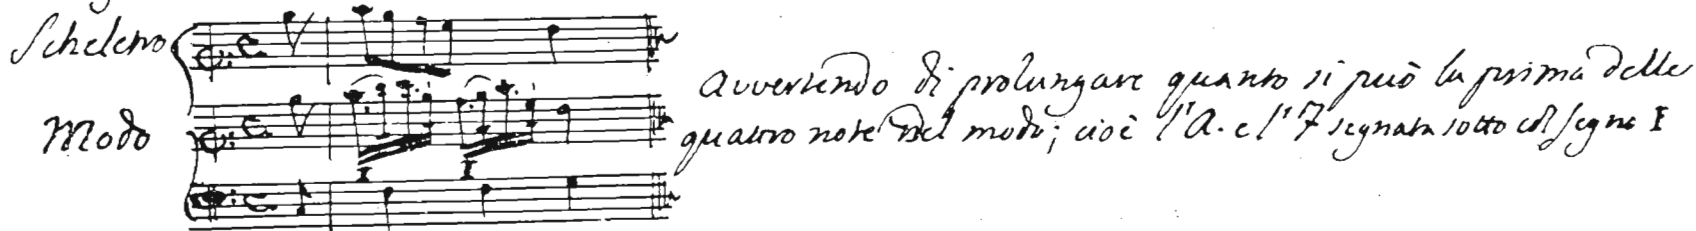 Scheletro
Modo
avvertendo di prolungare quanto si può la prima delle
quattro note del modo; cioè l'A. e l'F segnata sotto col segno I